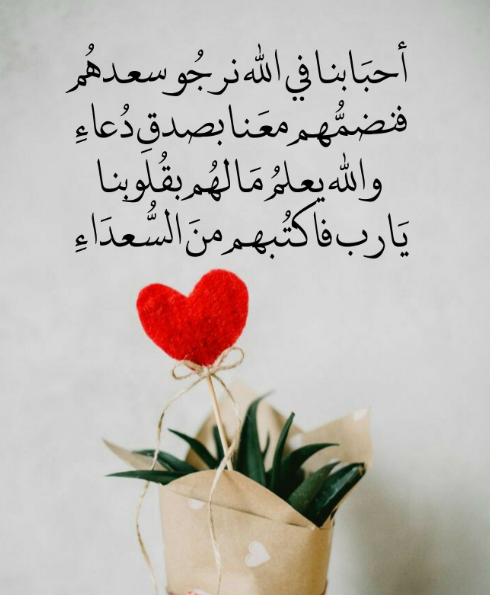 أحبَابنا في الله نرجُو سعدهُم
فنضمُّهم معَنا بصدقِ دُعاءِ
والله يعلمُ مَا لهُم بقُلُوبنا
يَارب فاكتُبهم منَ السُّعدَاءِ